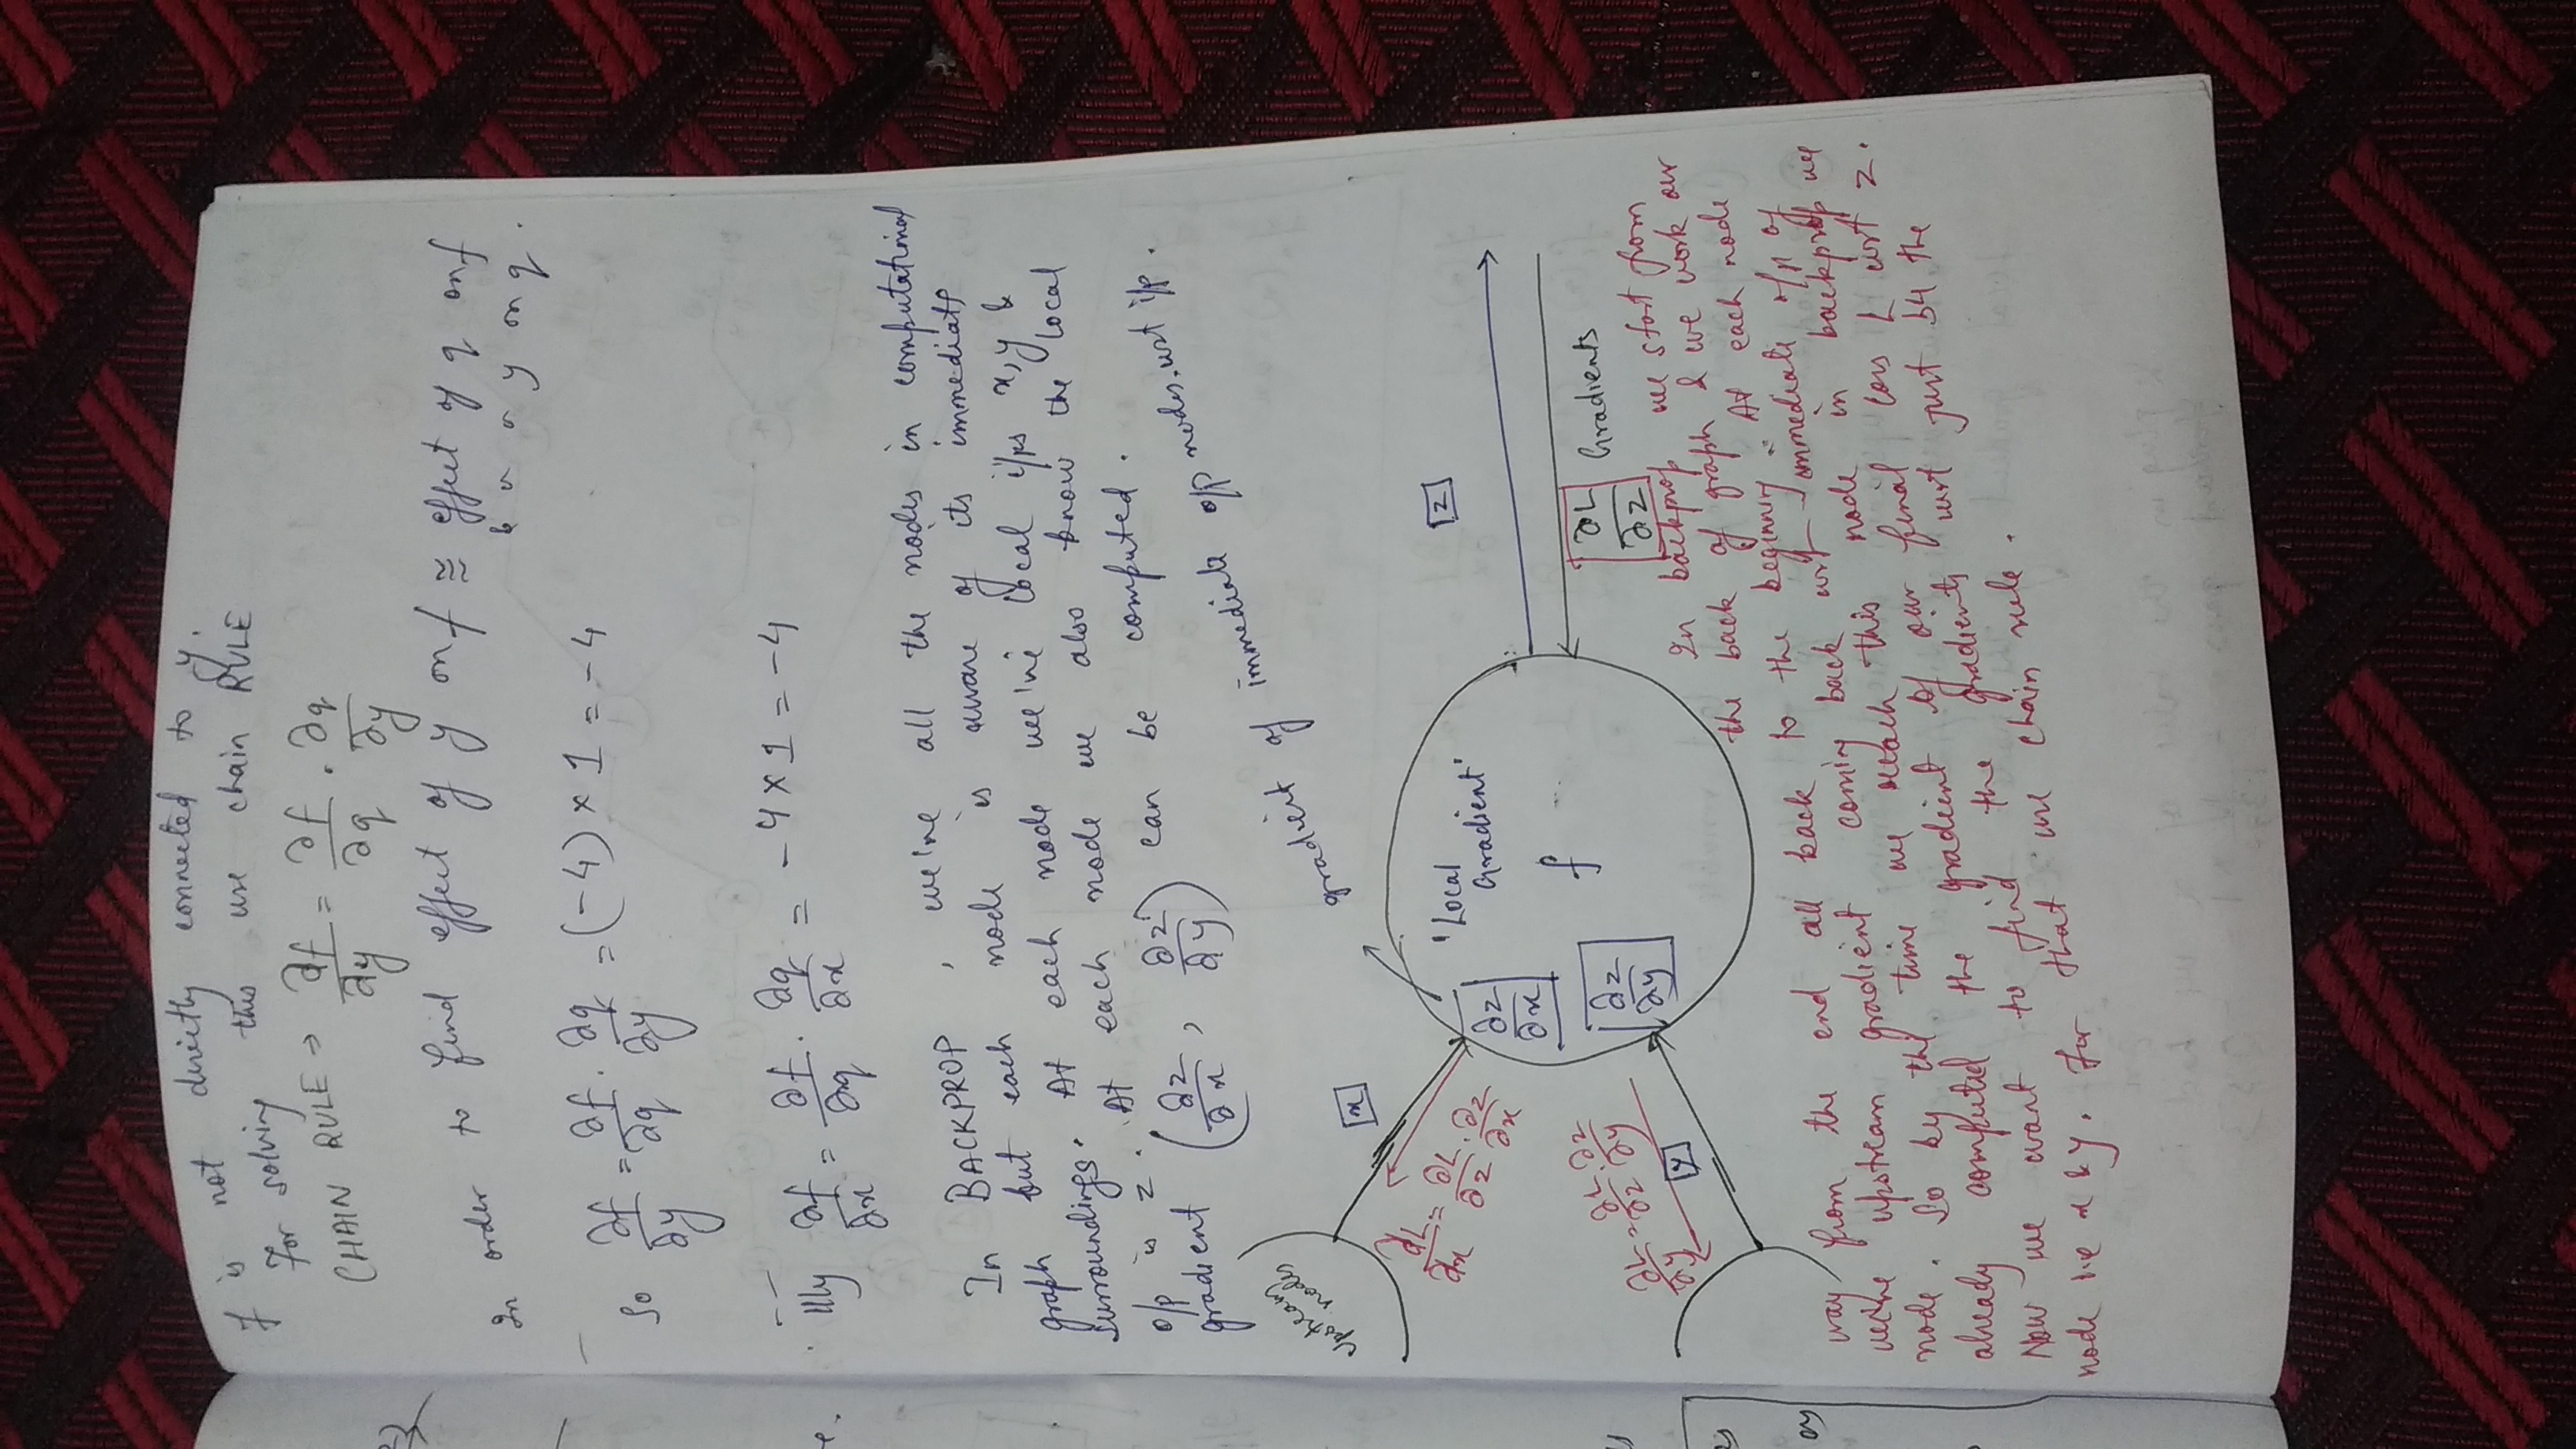 f is not directly connected to y.
For solving this use chain RULE
CHAIN RULE → ∂f/∂y = ∂f/∂q . ∂q/∂y
In order to find effect of y on f ≈ effect of q on f
& " " y on q.
So ∂f/∂y = ∂f/∂q . ∂q/∂y = (-4) × 1 = -4
IIIly ∂f/∂x = ∂f/∂q . ∂q/∂x = -4 × 1 = -4
In BACKPROP, we've all the nodes in computational
graph but each node is aware of its immediate
surroundings. At each node we've local i/ps x, y &
o/p is z. At each node we also know the local
gradient (∂z/∂x, ∂z/∂y) can be computed.
gradient of immediate o/p nodes wrt i/p.
Upstream
nodes
x
∂L/∂x = ∂L/∂z . ∂z/∂x
'Local
Gradient'
∂z/∂x
f
z
∂L/∂y = ∂L/∂z . ∂z/∂y
y
∂z/∂y
∂L/∂z Gradients
In backprop we start from
the back of graph & we work our
way from the end all back to the beginning. At each node
we've upstream gradient coming back wrt immediate o/p of
node. So by the time we reach this node in backprop we
already computed the gradient of our final loss L wrt z.
Now we want to find the gradients wrt just b4 the
node i.e x & y. For that use chain rule.